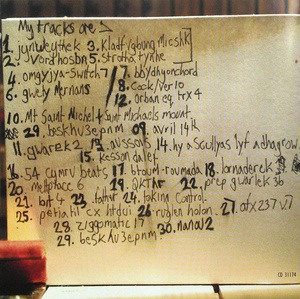 My tracks are
1. jynweythek 3. Kladfvgbung Micshk
2. Vordhosbn 5. Strotha tynhe
4. omgyjya-Switch7 7. bbydhyonchord
6. gwely Mernans 8. Cock/Ver10
12. orban eq trx 4
10. Mt Saint Michel + Saint Michaels mount
29. beskhu3epnm 09. avril 14th
11. gwarek2 13. aussois 14. hy a scullyas lyf adhagrow
15. kesson dalet
16. 54 cymru beats 17. btoum-roumada 18. lornaderek
20. meltphace 6 19. QKThr 22. prep gwarlek 3b
21. bit 4 23. father 24. taking Control
25. petiatil cx htdui 26. ruglen holon 27. afx237 v.7
28. ziggomatic 17 30. nanou 2
29. beskhu3epnm
CD 31174